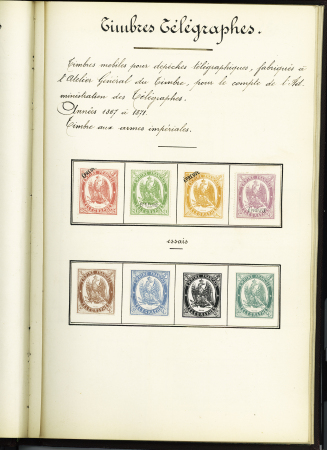 Timbres Télégraphes.
Timbres mobiles pour dépêches télégraphiques, fabriqués à
l'Atelier Général du Timbre, pour le compte de l'Ad-
ministration des Télégraphes.
Années 1867 à 1871.
Timbre aux armes impériales.
essais